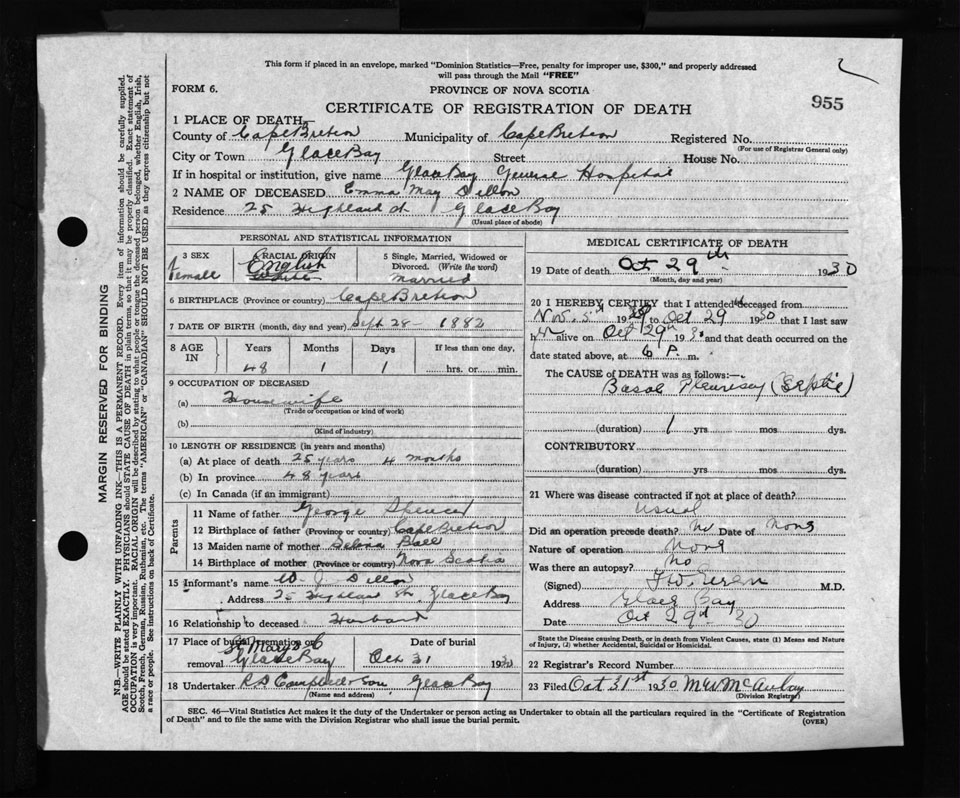 This form if placed in an envelope, marked "Dominion Statistics—Free, penalty for improper use, $300," and properly addressed
will pass through the Mail "FREE"
FORM 6.
PROVINCE OF NOVA SCOTIA
955
CERTIFICATE OF REGISTRATION OF DEATH
1 PLACE OF DEATH—
County of Cape Breton Municipality of Cape Breton Registered No.
(For use of Registrar General only)
City or Town Glace Bay Street House No.
If in hospital or institution, give name Glace Bay General Hospital
2 NAME OF DECEASED Emma May Dillon
Residence 25 Highland st Glace Bay
(Usual place of abode)
PERSONAL AND STATISTICAL INFORMATION
3 SEX 4 RACIAL ORIGIN 5 Single, Married, Widowed or
Divorced. (Write the word)
Female English White Married
6 BIRTHPLACE (Province or country) Cape Breton
7 DATE OF BIRTH (month, day and year) Sept 28 1882
8 AGE IN Years Months Days If less than one day,
48 1 1 hrs. or min.
9 OCCUPATION OF DECEASED
(a) Housewife
(Trade or occupation or kind of work)
(b)
(Kind of industry)
10 LENGTH OF RESIDENCE (in years and months)
(a) At place of death 25 years 4 months
(b) In province 48 years
(c) In Canada (if an immigrant)
Parents
11 Name of father George Spencer
12 Birthplace of father (Province or country) Cape Breton
13 Maiden name of mother Selina Ball
14 Birthplace of mother (Province or country) Nova Scotia
15 Informant's name W. J. Dillon
Address 25 Highland St. Glace Bay
16 Relationship to deceased Husband
17 Place of burial, cremation or Date of burial
St Mary's
removal Glace Bay Oct 31 1930
18 Undertaker Glace Bay
(Name and address)
MEDICAL CERTIFICATE OF DEATH
19 Date of death Oct 29th 1930
(Month, day and year)
20 I HEREBY CERTIFY that I attended deceased from
Nov. 5th 1929 to Oct 29 1930 that I last saw
h alive on Oct 29th 1930 and that death occurred on the
date stated above, at 6 P. m.
The CAUSE OF DEATH was as follows:—
Basal Pleurisy (Septic)
(duration) 1 yrs mos dys.
CONTRIBUTORY
(duration) yrs mos dys.
21 Where was disease contracted if not at place of death?
Usual
Did an operation precede death? No Date of None
Nature of operation None
Was there an autopsy? No
(Signed) M.D.
Address Glace Bay
Date Oct 29th 30
State the Disease causing Death, or in death from Violent Causes, state (1) Means and Nature
of Injury, (2) whether Accidental, Suicidal or Homicidal.
22 Registrar's Record Number
23 Filed Oct 31st 1930 McAulay
(Division Registrar)
SEC. 46—Vital Statistics Act makes it the duty of the Undertaker or person acting as Undertaker to obtain all the particulars required in the "Certificate of Registration
of Death" and to file the same with the Division Registrar who shall issue the burial permit.
(OVER)
MARGIN RESERVED FOR BINDING
N.B.—WRITE PLAINLY WITH UNFADING INK—THIS IS A PERMANENT RECORD. Every item of information should be carefully supplied.
AGE should be stated EXACTLY. PHYSICIANS should STATE CAUSE OF DEATH in plain terms, so that it may be properly classified. Exact statement of
OCCUPATION is very important. RACIAL ORIGIN will be described by stating to what people or tongue the deceased person belonged, whether English, Irish,
Scotch, French, German, Russian, Ruthenian, etc. The terms "AMERICAN" or "CANADIAN" SHOULD NOT BE USED as they express citizenship but not
a race or people. See instructions on back of Certificate.